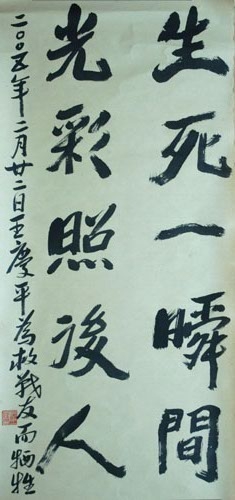 生死一瞬間
光彩照後人
二〇〇五年二月廿二日王慶平為救戰友而牺牲